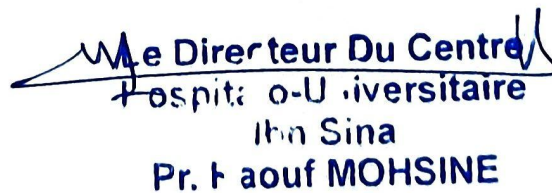 Le Directeur Du Centre
Hospitalo-Universitaire
Ibn Sina
Pr. Raouf MOHSINE